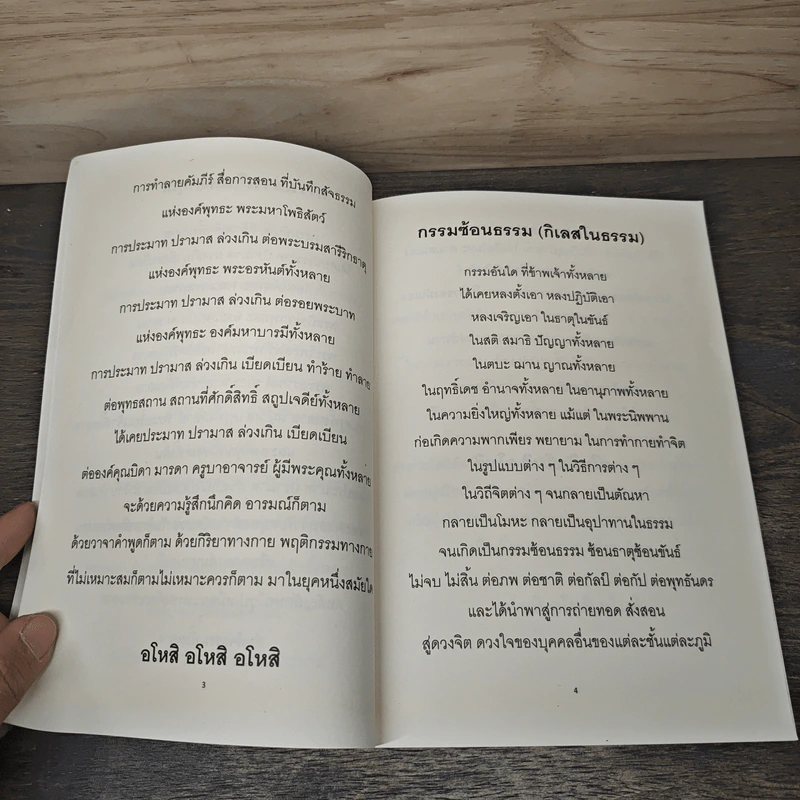 การทำลายคัมภีร์ สื่อการสอน ที่บันทึกสัจธรรม
แห่งองค์พุทธะ พระมหาโพธิสัตว์
การประมาท ปรามาส ล่วงเกิน ต่อพระบรมสารีริกธาตุ
แห่งองค์พุทธะ พระอรหันต์ทั้งหลาย
การประมาท ปรามาส ล่วงเกิน ต่อรอยพระบาท
แห่งองค์พุทธะ องค์มหาบารมีทั้งหลาย
การประมาท ปรามาส ล่วงเกิน เบียดเบียน ทำร้าย ทำลาย
ต่อพุทธสถาน สถานที่ศักดิ์สิทธิ์ สถูปเจดีย์ทั้งหลาย
ได้เคยประมาท ปรามาส ล่วงเกิน เบียดเบียน
ต่อองค์คุณบิดา มารดา ครูบาอาจารย์ ผู้มีพระคุณทั้งหลาย
จะด้วยความรู้สึกนึกคิด อารมณ์ก็ตาม
ด้วยวาจาคำพูดก็ตาม ด้วยกิริยาทางกาย พฤติกรรมทางกาย
ที่ไม่เหมาะสมก็ตามไม่เหมาะควรก็ตาม มาในยุคหนึ่งสมัยใด
อโหสิ อโหสิ อโหสิ
3
กรรมซ้อนธรรม (กิเลสในธรรม)
กรรมอันใด ที่ข้าพเจ้าทั้งหลาย
ได้เคยหลงตั้งเอา หลงปฏิบัติเอา
หลงเจริญเอา ในธาตุในขันธ์
ในสติ สมาธิ ปัญญาทั้งหลาย
ในตบะ ฌาน ญาณทั้งหลาย
ในฤทธิ์เดช อำนาจทั้งหลาย ในอานุภาพทั้งหลาย
ในความยิ่งใหญ่ทั้งหลาย แม้แต่ ในพระนิพพาน
ก่อเกิดความพากเพียร พยายาม ในการทำกายทำจิต
ในรูปแบบต่าง ๆ ในวิธีการต่าง ๆ
ในวิถีจิตต่าง ๆ จนกลายเป็นตัณหา
กลายเป็นโมหะ กลายเป็นอุปาทานในธรรม
จนเกิดเป็นกรรมซ้อนธรรม ซ้อนธาตุซ้อนขันธ์
ไม่จบ ไม่สิ้น ต่อภพ ต่อชาติ ต่อกัลป์ ต่อกัป ต่อพุทธันดร
และได้นำพาสู่การถ่ายทอด สั่งสอน
สู่ดวงจิต ดวงใจของบุคคลอื่นของแต่ละชั้นแต่ละภูมิ
4